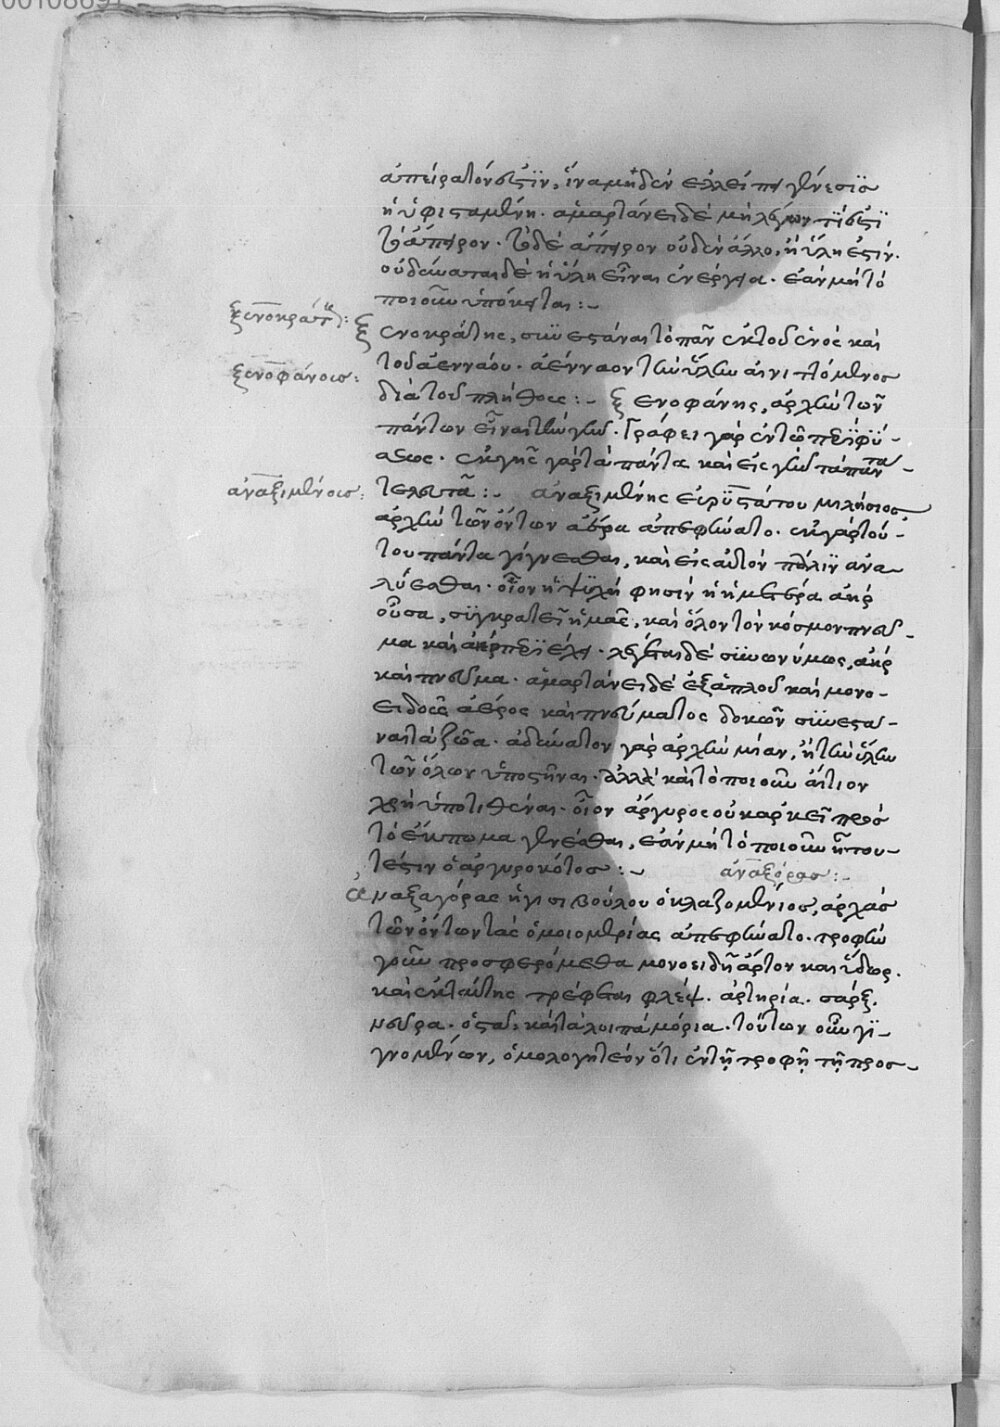 ἀπείρατόν ἐστιν, ἵνα μηδὲν ἐλλείπη γένεσις
ἡ ὑφισταμένη. ἁμαρτάνει δὲ μὴ λέγων τί ἐστι
τὸ ἄπειρον. τὸ δὲ ἄπειρον οὐδὲν ἄλλο, ἢ ὕλη ἐστίν.
οὐ δύναται δὲ ἡ ὕλη εἶναι ἐνέργεια. ἐὰν μὴ τὸ
ποιοῦν ὑπόκηται:-
ξενοκράτης:
Ξενοκράτης, συνεστάναι τὸ πᾶν ἐκ τοῦ ἑνὸς καὶ
τοῦ ἀεννάου. ἀένναον τὴν ὕλην αἰνιττόμενος
ξενοφάνους:
διὰ τοῦ πλήθους:- Ξενοφάνης, ἀρχὴν τῶν
πάντων εἶναι τὴν γῆν. Γράφει γὰρ ἐν τῷ περὶ φύ-
σεως. ἐκ γῆς γὰρ τὰ πάντα καὶ εἰς γῆν τὰ πάντα
ἀναξιμένους:
τελευτᾶ:- ἀναξιμένης εὐρυστάτου μιλήσιος
ἀρχὴν τῶν ὄντων ἀέρα ἀπεφήνατο. ἐκ γὰρ τού-
του πάντα γίγνεσθαι, καὶ εἰς αὐτὸν πάλιν ἀνα-
λύεσθαι. οἷον ἡ ψυχή φησὶν ἡ ἡμετέρα ἀὴρ
οὖσα, συγκρατεῖ ἡμᾶς, καὶ ὅλον τὸν κόσμον πνεῦ-
μα καὶ ἀὴρ περιέχει. λέγεται δὲ συνωνύμως, ἀὴρ
καὶ πνεῦμα. ἁμαρτάνει δὲ ἐξ ἁπλοῦ καὶ μονο-
ειδοῦς ἀέρος καὶ πνεύματος δοκῶν συνεστά-
ναι τὰ ζῶα. ἀδύνατον γὰρ ἀρχὴν μίαν, ἢ τὴν ὕλην
τῶν ὅλων ὑποστῆναι. ἀλλὰ καὶ τὸ ποιοῦν αἴτιον
χρὴ ὑποτιθέναι. οἷον ἄργυρος οὐκ ἀρκεῖ πρὸς
τὸ ἔκπωμα γενέσθαι, ἐὰν μὴ τὸ ποιοῦν ἦ του-
τέστιν ὁ ἀργυροκότος:- ἀναξόρας:-
ἀναξαγόρας ἡγισιβούλου ὁ κλαζομένιος, ἀρχὰς
τῶν ὄντων τὰς ὁμοιομερίας ἀπεφήνατο. τροφὴν
γοῦν προσφερόμεθα μονοειδῆ ἄρτον καὶ ὕδωρ.
καὶ ἐκ ταύτης τρέφεται φλέψ. ἀρτηρία. σάρξ.
νεῦρα. ὀστᾶ. καὶ τὰ λοιπὰ μόρια. τούτων οὖν γι-
γνομένων, ὁμολογητέον ὅτι ἐν τῇ τροφῇ τῇ προσ-